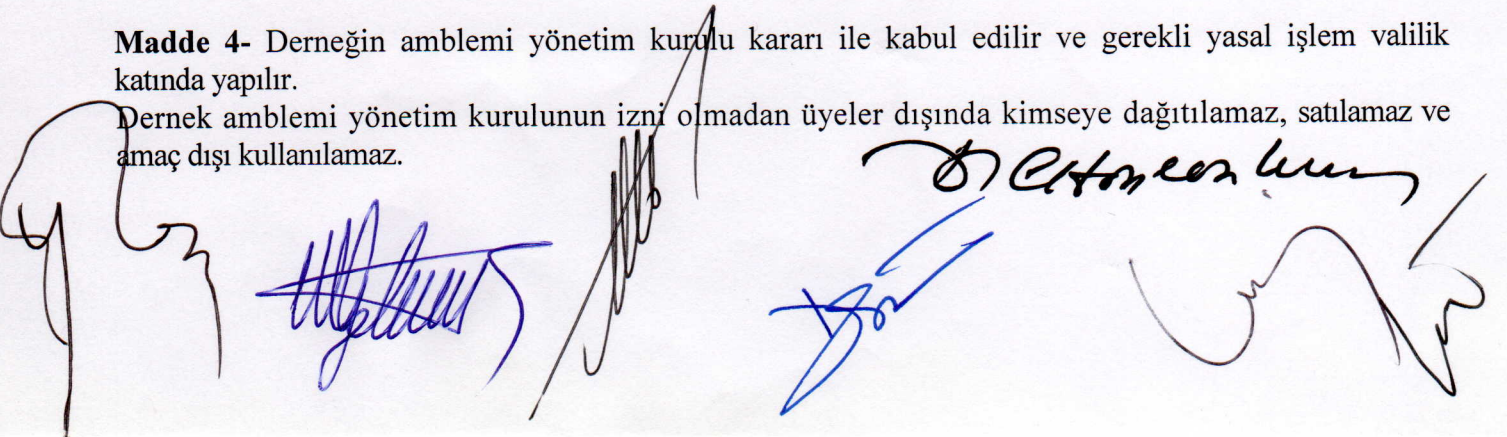 Madde 4- Derneğin amblemi yönetim kurulu kararı ile kabul edilir ve gerekli yasal işlem valilik
katında yapılır.
Dernek amblemi yönetim kurulunun izni olmadan üyeler dışında kimseye dağıtılamaz, satılamaz ve
amaç dışı kullanılamaz.